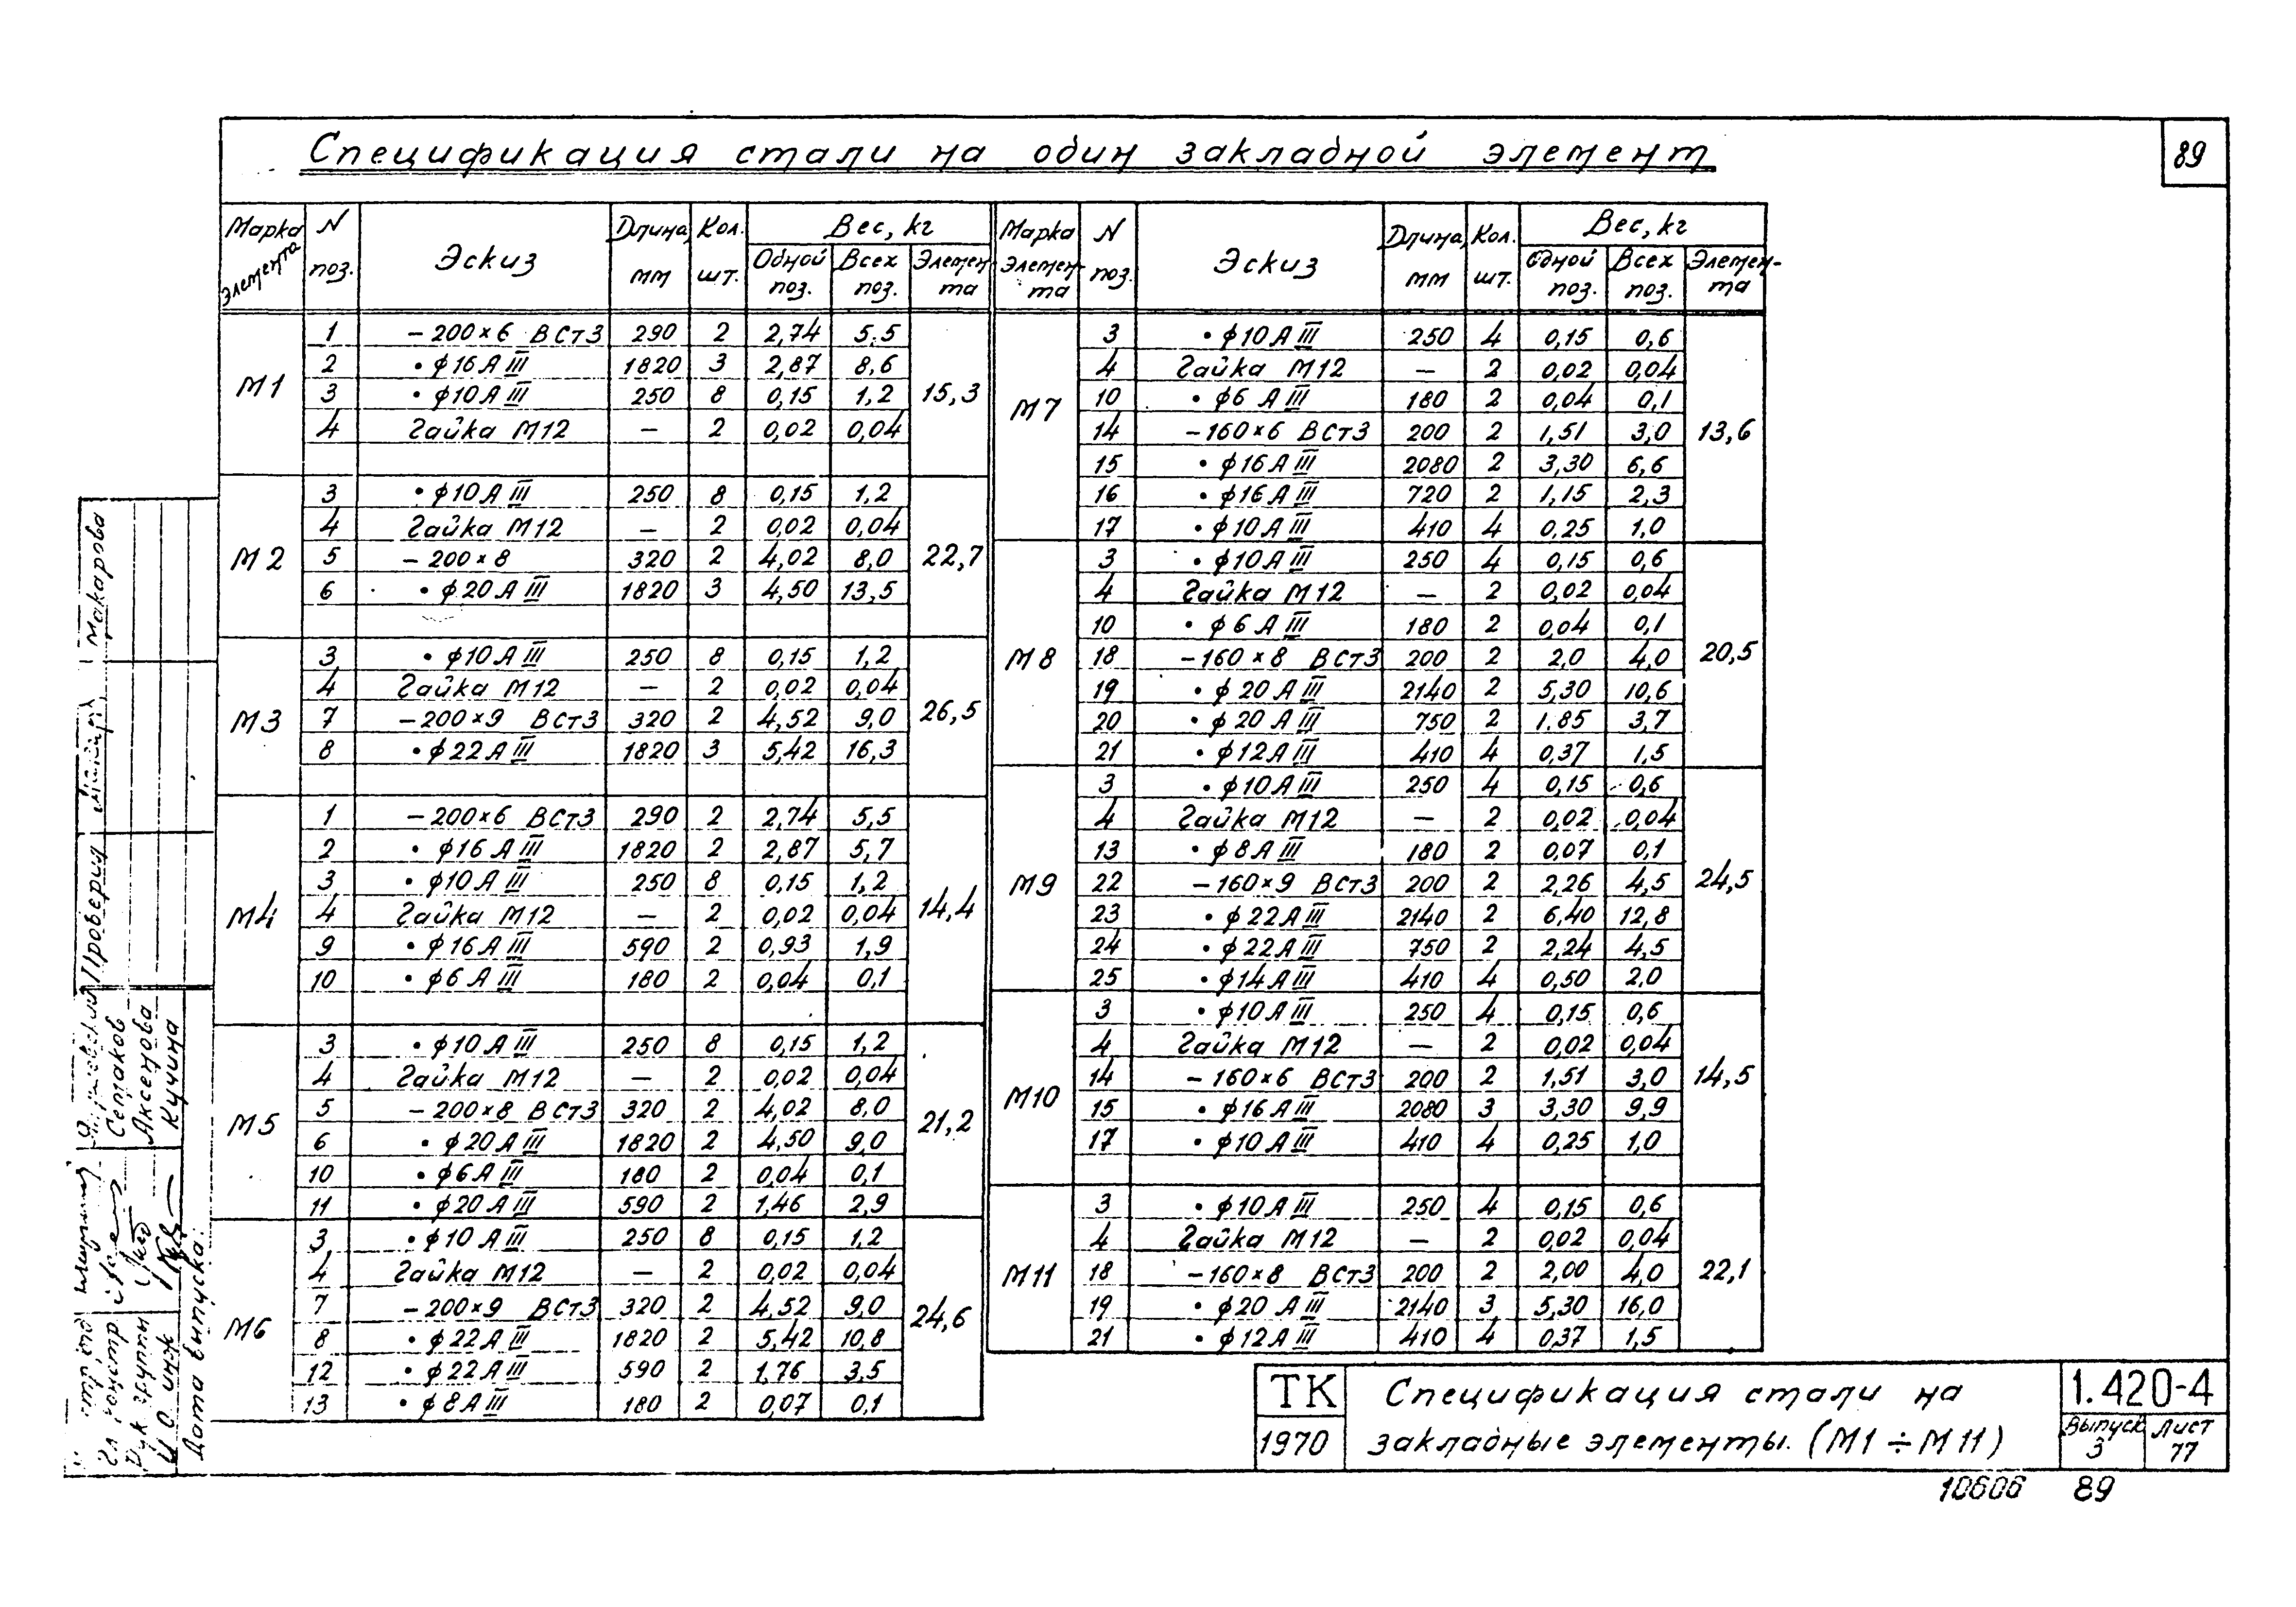 89
Спецификация стали на один закладной элемент
Марка элемента | N поз. | Эскиз | Длина, мм | Кол. шт. | Вес, кг
Одной поз. | Всех поз. | Элемента
М1
1 | -200×6 ВСт3 | 290 | 2 | 2,74 | 5,5
2 | • ϕ16 А III | 1820 | 3 | 2,87 | 8,6
3 | • ϕ10 А III | 250 | 8 | 0,15 | 1,2 | 15,3
4 | Гайка М12 | — | 2 | 0,02 | 0,04
М2
3 | • ϕ10 А III | 250 | 8 | 0,15 | 1,2
4 | Гайка М12 | — | 2 | 0,02 | 0,04
5 | -200×8 | 320 | 2 | 4,02 | 8,0 | 22,7
6 | • ϕ20 А III | 1820 | 3 | 4,50 | 13,5
М3
3 | • ϕ10 А III | 250 | 8 | 0,15 | 1,2
4 | Гайка М12 | — | 2 | 0,02 | 0,04
7 | -200×9 ВСт3 | 320 | 2 | 4,52 | 9,0 | 26,5
8 | • ϕ22 А III | 1820 | 3 | 5,42 | 16,3
М4
1 | -200×6 ВСт3 | 290 | 2 | 2,74 | 5,5
2 | • ϕ16 А III | 1820 | 2 | 2,87 | 5,7
3 | • ϕ10 А III | 250 | 8 | 0,15 | 1,2
4 | Гайка М12 | — | 2 | 0,02 | 0,04 | 14,4
9 | • ϕ16 А III | 590 | 2 | 0,93 | 1,9
10 | • ϕ6 А III | 180 | 2 | 0,04 | 0,1
М5
3 | • ϕ10 А III | 250 | 8 | 0,15 | 1,2
4 | Гайка М12 | — | 2 | 0,02 | 0,04
5 | -200×8 ВСт3 | 320 | 2 | 4,02 | 8,0 | 21,2
6 | • ϕ20 А III | 1820 | 2 | 4,50 | 9,0
10 | • ϕ6 А III | 180 | 2 | 0,04 | 0,1
11 | • ϕ20 А III | 590 | 2 | 1,46 | 2,9
М6
3 | • ϕ10 А III | 250 | 8 | 0,15 | 1,2
4 | Гайка М12 | — | 2 | 0,02 | 0,04
7 | -200×9 ВСт3 | 320 | 2 | 4,52 | 9,0 | 24,6
8 | • ϕ22 А III | 1820 | 2 | 5,42 | 10,8
12 | • ϕ22 А III | 590 | 2 | 1,76 | 3,5
13 | • ϕ8 А III | 180 | 2 | 0,07 | 0,1
Марка элемента | N поз. | Эскиз | Длина, мм | Кол. шт. | Вес, кг
Одной поз. | Всех поз. | Элемен-та
М7
3 | • ϕ10 А III | 250 | 4 | 0,15 | 0,6
4 | Гайка М12 | — | 2 | 0,02 | 0,04
10 | • ϕ6 А III | 180 | 2 | 0,04 | 0,1
14 | -160×6 ВСт3 | 200 | 2 | 1,51 | 3,0 | 13,6
15 | • ϕ16 А III | 2080 | 2 | 3,30 | 6,6
16 | • ϕ16 А III | 720 | 2 | 1,15 | 2,3
17 | • ϕ10 А III | 410 | 4 | 0,25 | 1,0
М8
3 | • ϕ10 А III | 250 | 4 | 0,15 | 0,6
4 | Гайка М12 | — | 2 | 0,02 | 0,04
10 | • ϕ6 А III | 180 | 2 | 0,04 | 0,1
18 | -160×8 ВСт3 | 200 | 2 | 2,0 | 4,0 | 20,5
19 | • ϕ20 А III | 2140 | 2 | 5,30 | 10,6
20 | • ϕ20 А III | 750 | 2 | 1.85 | 3,7
21 | • ϕ12 А III | 410 | 4 | 0,37 | 1,5
М9
3 | • ϕ10 А III | 250 | 4 | 0,15 | 0,6
4 | Гайка М12 | — | 2 | 0,02 | 0,04
13 | • ϕ8 А III | 180 | 2 | 0,07 | 0,1
22 | -160×9 ВСт3 | 200 | 2 | 2,26 | 4,5 | 24,5
23 | • ϕ22 А III | 2140 | 2 | 6,40 | 12,8
24 | • ϕ22 А III | 750 | 2 | 2,24 | 4,5
25 | • ϕ14 А III | 410 | 4 | 0,50 | 2,0
М10
3 | • ϕ10 А III | 250 | 4 | 0,15 | 0,6
4 | Гайка М12 | — | 2 | 0,02 | 0,04
14 | -160×6 ВСт3 | 200 | 2 | 1,51 | 3,0 | 14,5
15 | • ϕ16 А III | 2080 | 3 | 3,30 | 9,9
17 | • ϕ10 А III | 410 | 4 | 0,25 | 1,0
М11
3 | • ϕ10 А III | 250 | 4 | 0,15 | 0,6
4 | Гайка М12 | — | 2 | 0,02 | 0,04
18 | -160×8 ВСт3 | 200 | 2 | 2,00 | 4,0 | 22,1
19 | • ϕ20 А III | 2140 | 3 | 5,30 | 16,0
21 | • ϕ12 А III | 410 | 4 | 0,37 | 1,5
Макарова
Проверил
Семаков
Аксенова
Кучина
Гл. констр.
Рук группы
И О инж
Дата выпуска:
ТК
1970
Спецификация стали на
закладные элементы. (М1÷М11)
1.420-4
Выпуск 3
Лист 77
10606 89